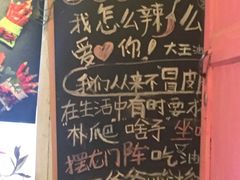 我怎么辣么
爱你！大王
我们从来不冒皮
在生活中有时要
林爬 啥子 坐
摆龙门阵 吃油